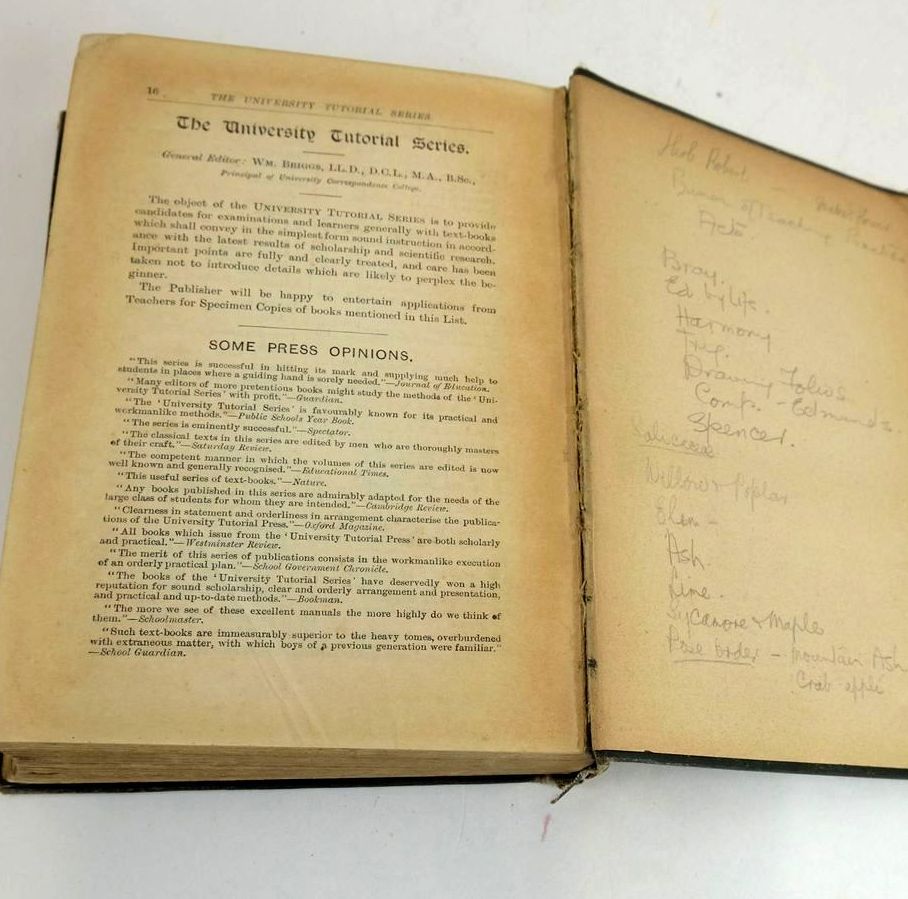 16
THE UNIVERSITY TUTORIAL SERIES
The University Tutorial Series.
General Editor: WM. BRIGGS, LL.D., D.C.L., M.A., B.Sc.,
Principal of University Correspondence College.
The object of the UNIVERSITY TUTORIAL SERIES is to provide
candidates for examinations and learners generally with text-books
which shall convey in the simplest form sound instruction in accord-
ance with the latest results of scholarship and scientific research.
Important points are fully and clearly treated, and care has been
taken not to introduce details which are likely to perplex the be-
ginner.
The Publisher will be happy to entertain applications from
Teachers for Specimen Copies of books mentioned in this List.
SOME PRESS OPINIONS.
"This series is successful in hitting its mark and supplying much help to
students in places where a guiding hand is sorely needed."—Journal of Education.
"Many editors of more pretentious books might study the methods of the 'Uni-
versity Tutorial Series' with profit."—Guardian.
"The 'University Tutorial Series' is favourably known for its practical and
workmanlike methods."—Public Schools Year Book.
"The series is eminently successful."—Spectator.
"The classical texts in this series are edited by men who are thoroughly masters
of their craft."—Saturday Review.
"The competent manner in which the volumes of this series are edited is now
well known and generally recognised."—Educational Times.
"This useful series of text-books."—Nature.
"Any books published in this series are admirably adapted for the needs of the
large class of students for whom they are intended."—Cambridge Review.
"Clearness in statement and orderliness in arrangement characterise the publica-
tions of the University Tutorial Press."—Oxford Magazine.
"All books which issue from the 'University Tutorial Press' are both scholarly
and practical."—Westminster Review.
"The merit of this series of publications consists in the workmanlike execution
of an orderly practical plan."—School Government Chronicle.
"The books of the 'University Tutorial Series' have deservedly won a high
reputation for sound scholarship, clear and orderly arrangement and presentation,
and practical and up-to-date methods."—Bookman.
"The more we see of these excellent manuals the more highly do we think of
them."—Schoolmaster.
"Such text-books are immeasurably superior to the heavy tomes, overburdened
with extraneous matter, with which boys of a previous generation were familiar."
—School Guardian.
Herb Robert
Bray.
Ed by Life.
Harmony
Drawing Folios
Comp. - Edmunds.
Spencer.
Salicaceae
Willow & Poplar
Ash.
Lime.
Sycamore & Maple
Rose order - Mountain Ash
Crab apple